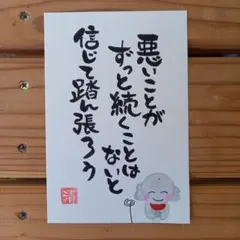 悪いことが
ずっと続くことは
ないと
信じて踏ん張ろう